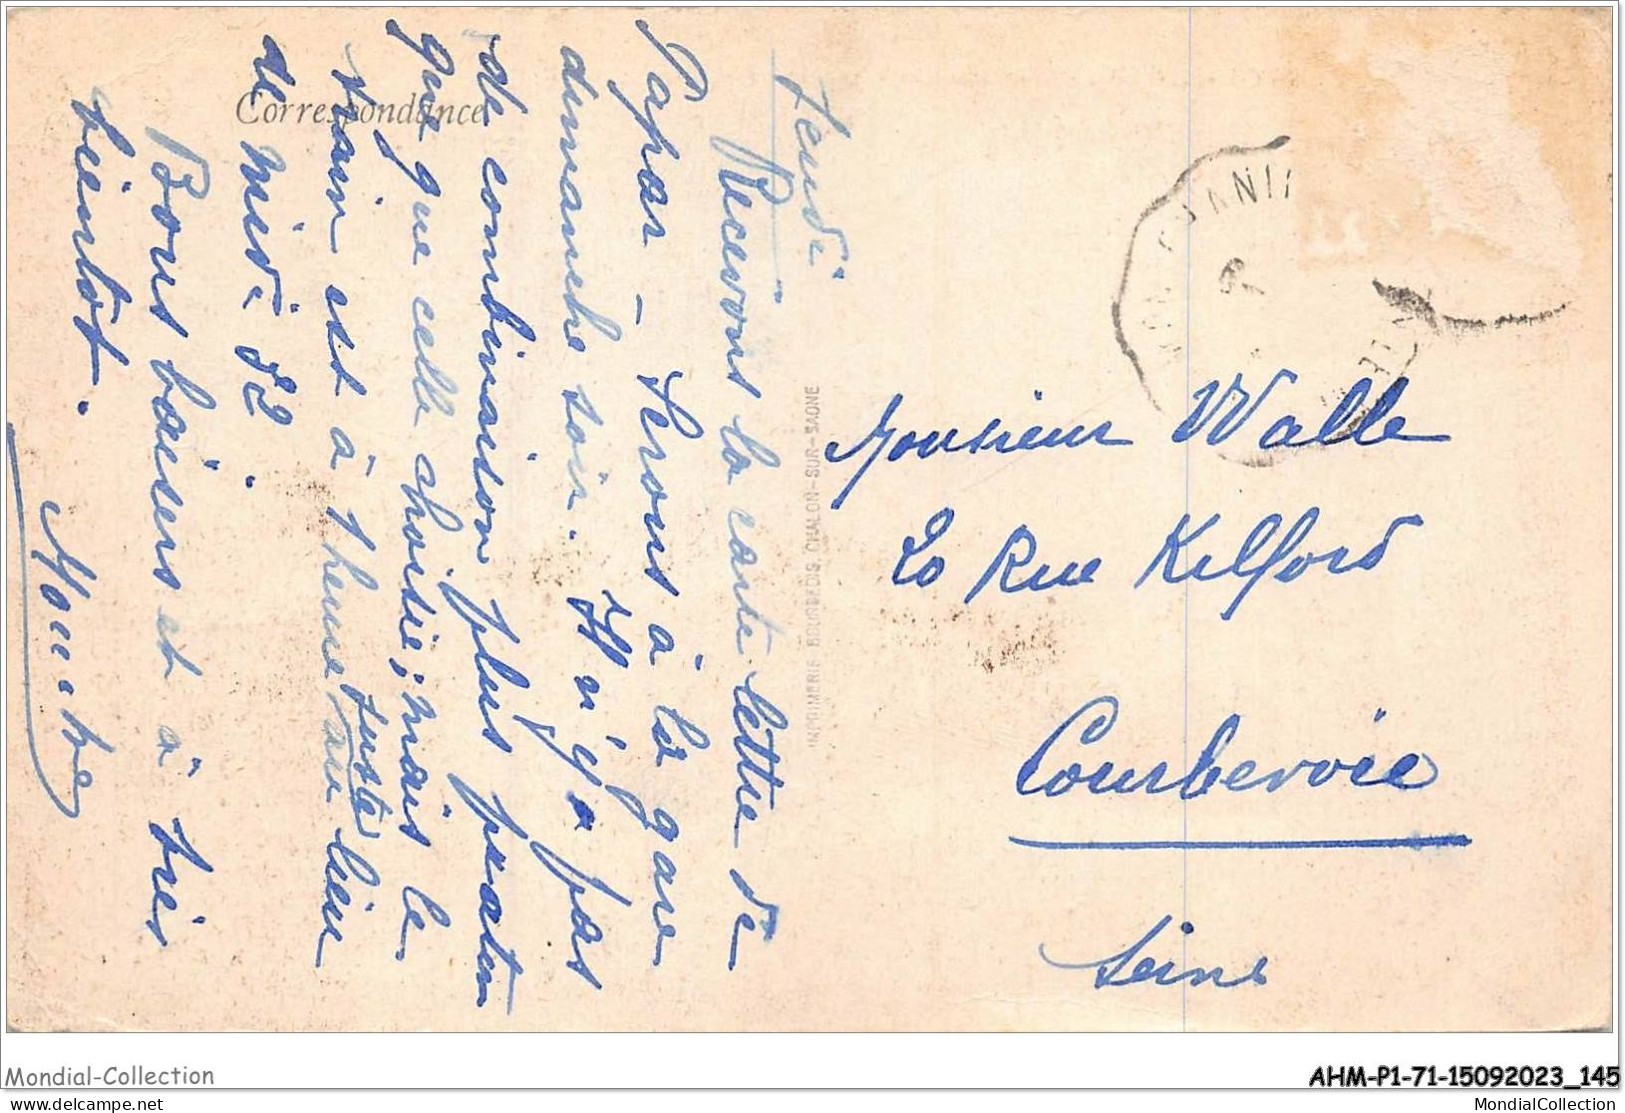 Correspondance
Jeudi
Recevons la carte lettre de
Papa – Serons à la gare
dimanche soir. Il n'y a pas
de combinaison plus
que que celle choisie; mais le
train est à 1 heure juste au lieu
de midi 52.
Bons baisers et à très
bientôt.
IMPRIMERIE BOURGEOIS, CHALON-SUR-SAONE
Monsieur Walle
20 Rue Kilford
Courbevoie
Seine
Mondial-Collection
AHM-P1-71-15092023_145
delcampe.net
MondialCollection